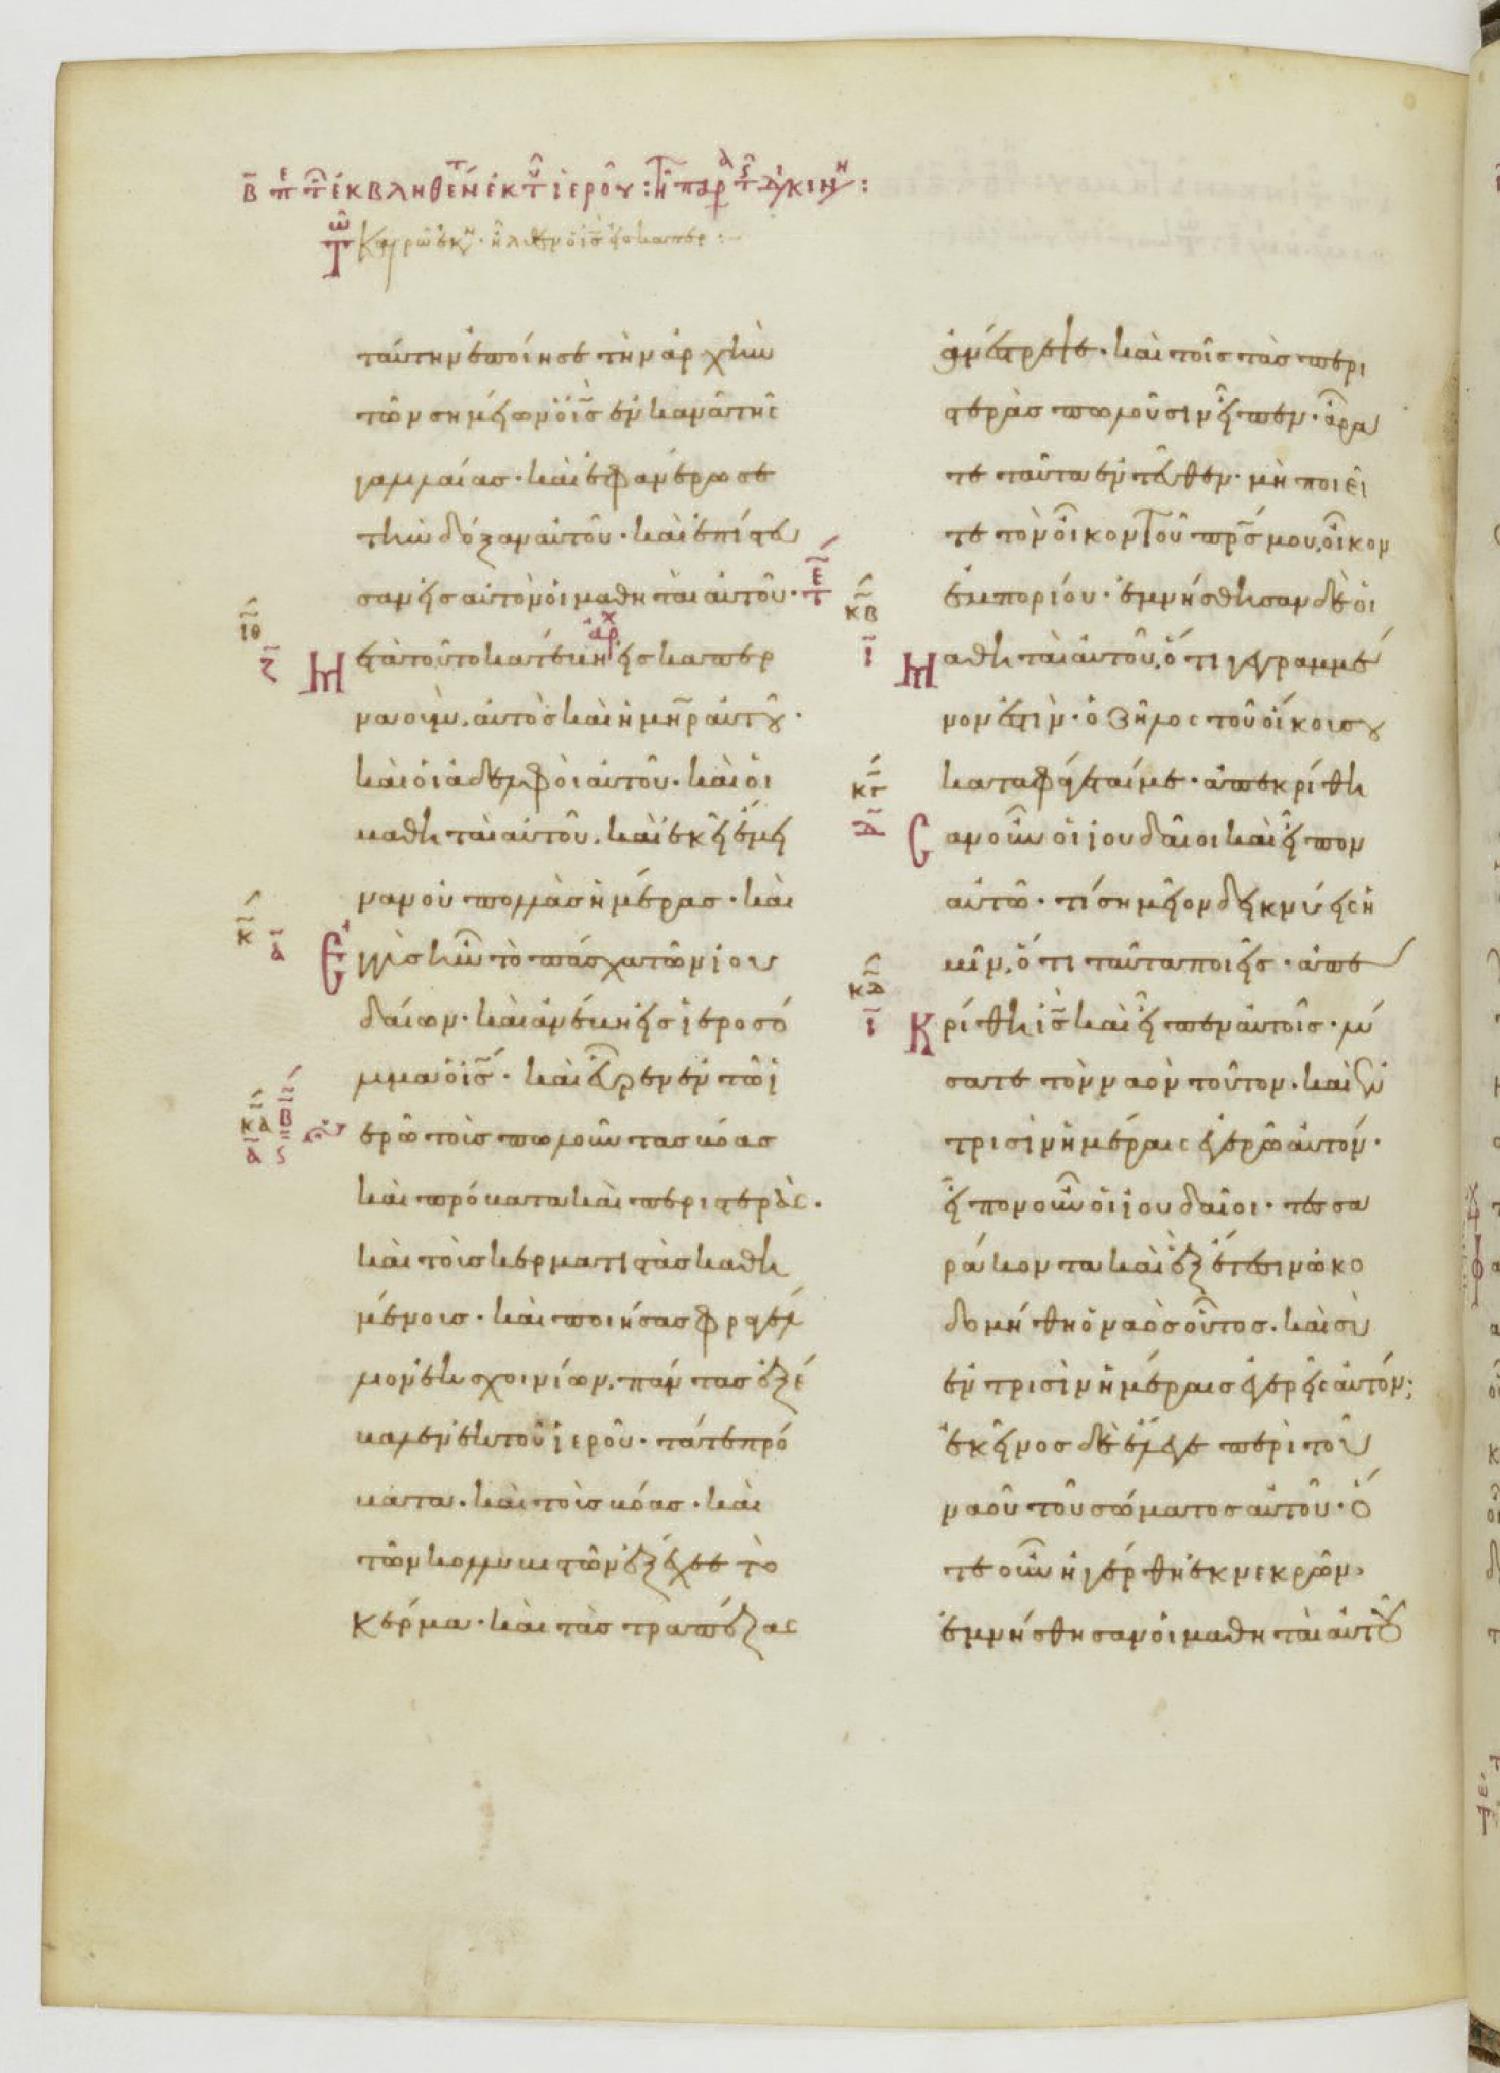 ταύτην ἐποίησε τὴν ἀρχὴν
τῶν σημείων ὁ ις ἐν κανᾶ τῆς
γαλιλαίας· καὶ ἐφανέρωσε
τὴν δόξαν αὐτοῦ· καὶ ἐπίστευ
σαν εἰς αὐτὸν οἱ μαθηταὶ αὐτοῦ·
Μετὰ τοῦτο κατέβη εἰς καπερ
ναούμ, αὐτὸς καὶ ἡ μηρ αὐτοῦ·
καὶ οἱ ἀδελφοὶ αὐτοῦ· καὶ οἱ
μαθηταὶ αὐτοῦ, καὶ ἐκεῖ ἔμει
ναν οὐ πολλὰς ἡμέρας· καὶ
Ἐγγὺς ἦν τὸ πάσχα τῶν ιου
δαίων· καὶ ἀνέβη εἰς ιεροσό
λυμα ὁ ις· καὶ εὗρεν ἐν τῶ ι
ερῶ τοὺς πωλοῦντας βόας
καὶ πρόβατα καὶ περιστεράς·
καὶ τοὺς κερματιστὰς καθη
μένους· καὶ ποιήσας φραγέλ
λιον ἐκ σχοινίων, πάντας ἐξέ
βαλεν ἐκ τοῦ ιεροῦ· τά τε πρό
βατα· καὶ τοὺς βόας· καὶ
τῶν κολλυβιστῶν ἐξέχεε τὸ
κέρμα· καὶ τὰς τραπέζας
ἀνέστρεψε· καὶ τοῖς τὰς περι
στερὰς πωλοῦσιν εἶπεν· ἄρα
τε ταῦτα ἐντεῦθεν· μὴ ποιεῖ
τε τὸν οἶκον τοῦ πρς μου, οἶκον
ἐμπορίου· ἐμνήσθησαν δὲ οἱ
Μαθηταὶ αὐτοῦ, ὅτι γεγραμμέ
νον ἐστὶν· ὁ ζῆλος τοῦ οἴκου σου
καταφάγεταί με· ἀπεκρίθη
σαν οὖν οἱ ιουδαῖοι καὶ εἶπον
αὐτῶ· τί σημεῖον δεικνύεις ἡ
μῖν, ὅτι ταῦτα ποιεῖς· ἀπε
Κρίθη ις καὶ εἶπεν αὐτοῖς· λύ
σατε τὸν ναὸν τοῦτον· καὶ ἐν
τρισὶν ἡμέραις ἐγερῶ αὐτόν·
εἶπον οὖν οἱ ιουδαῖοι· τεσσα
ράκοντα καὶ ἓξ ἔτεσιν ὠκο
δομήθη ὁ ναὸς οὗτος· καὶ σὺ
ἐν τρισὶν ἡμέραις ἐγερεῖς αὐτόν;
ἐκεῖνος δὲ ἔλεγε περὶ τοῦ
ναοῦ τοῦ σώματος αὐτοῦ· ὅ
τε οὖν ἠγέρθη ἐκ νεκρῶν,
ἐμνήσθησαν οἱ μαθηταὶ αὐτοῦ